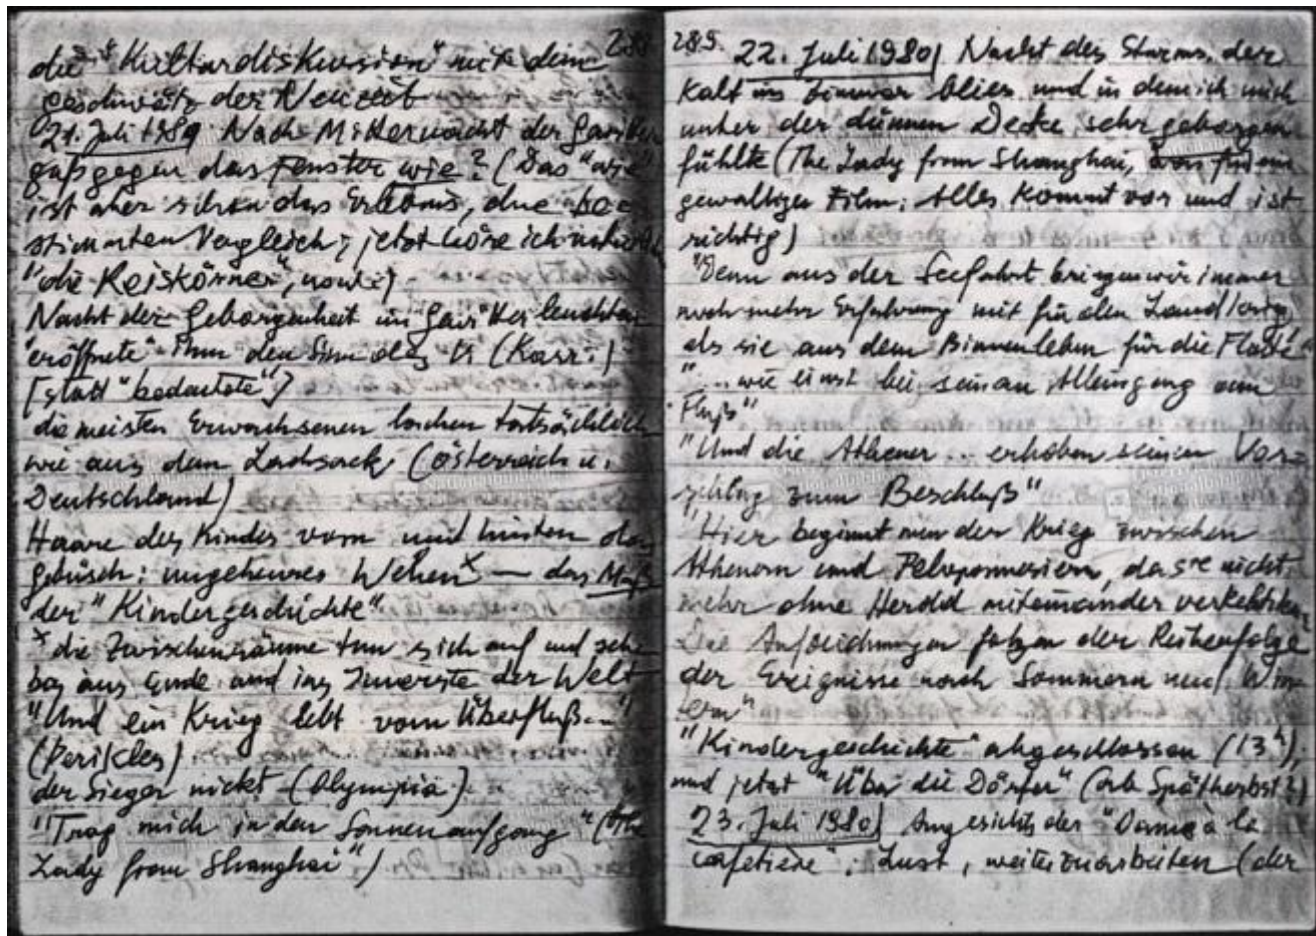 288
die "Kulturdiskussion" mit dem
Geschwätz der Neuzeit
21. Juli 1980 Nach Mitternacht der
gegen das Fenster wie? (Das "wie"
ist aber schon das Erlebnis, ohne be-
stimmten Vergleich; jetzt höre ich
"die Reiskörner",
Nacht der Geborgenheit im
"eröffnete" ihm den Sinn des
[statt "bedeutete"]
die meisten Erwachsenen lachen tatsächlich
wie aus dem Lachsack (Österreich u.
Deutschland)
Haare des Kindes vorn und hinten
gebüsch: ungeheures Wehen x — das Maß
der "Kindergeschichte"
x die Zwischenräume tun sich auf und
bis ans Ende und ins Innerste der Welt
"Und ein Krieg lebt vom Überfluß..."
(Perikles)
der Sieger nickt (Olympia)
"Trag mich in den Sonnenaufgang" (The
Lady from Shanghai")
289.
22. Juli 1980 Nacht des Sturms, der
kalt ins Zimmer blies und in dem ich mich
unter der dünnen Decke sehr geborgen
fühlte (The Lady from Shanghai, ein
gewaltiger Film; Alles kommt vor und ist
richtig)
"Denn aus der Seefahrt bringen wir immer
noch mehr Erfahrung mit für den Landkrieg
als sie aus dem Binnenleben für die Flotte"
"... wie einst bei seinem Alleingang am
Fluß"
"Und die Athener ... erhoben seinen Vor-
schlag zum Beschluß"
"Hier beginnt nun der Krieg zwischen
Athenern und Peloponnesiern, da sie nicht
mehr ohne Herold miteinander verkehrten
Die Aufzeichnungen folgen der Reihenfolge
der Ereignisse nach Sommern und Win-
tern"
"Kindergeschichte" abgeschlossen (13h),
und jetzt "Über die Dörfer" (ab Spätherbst?)
23. Juli 1980 Angesichts der "Dame à la
cafetière": Lust, weiterzuarbeiten (der